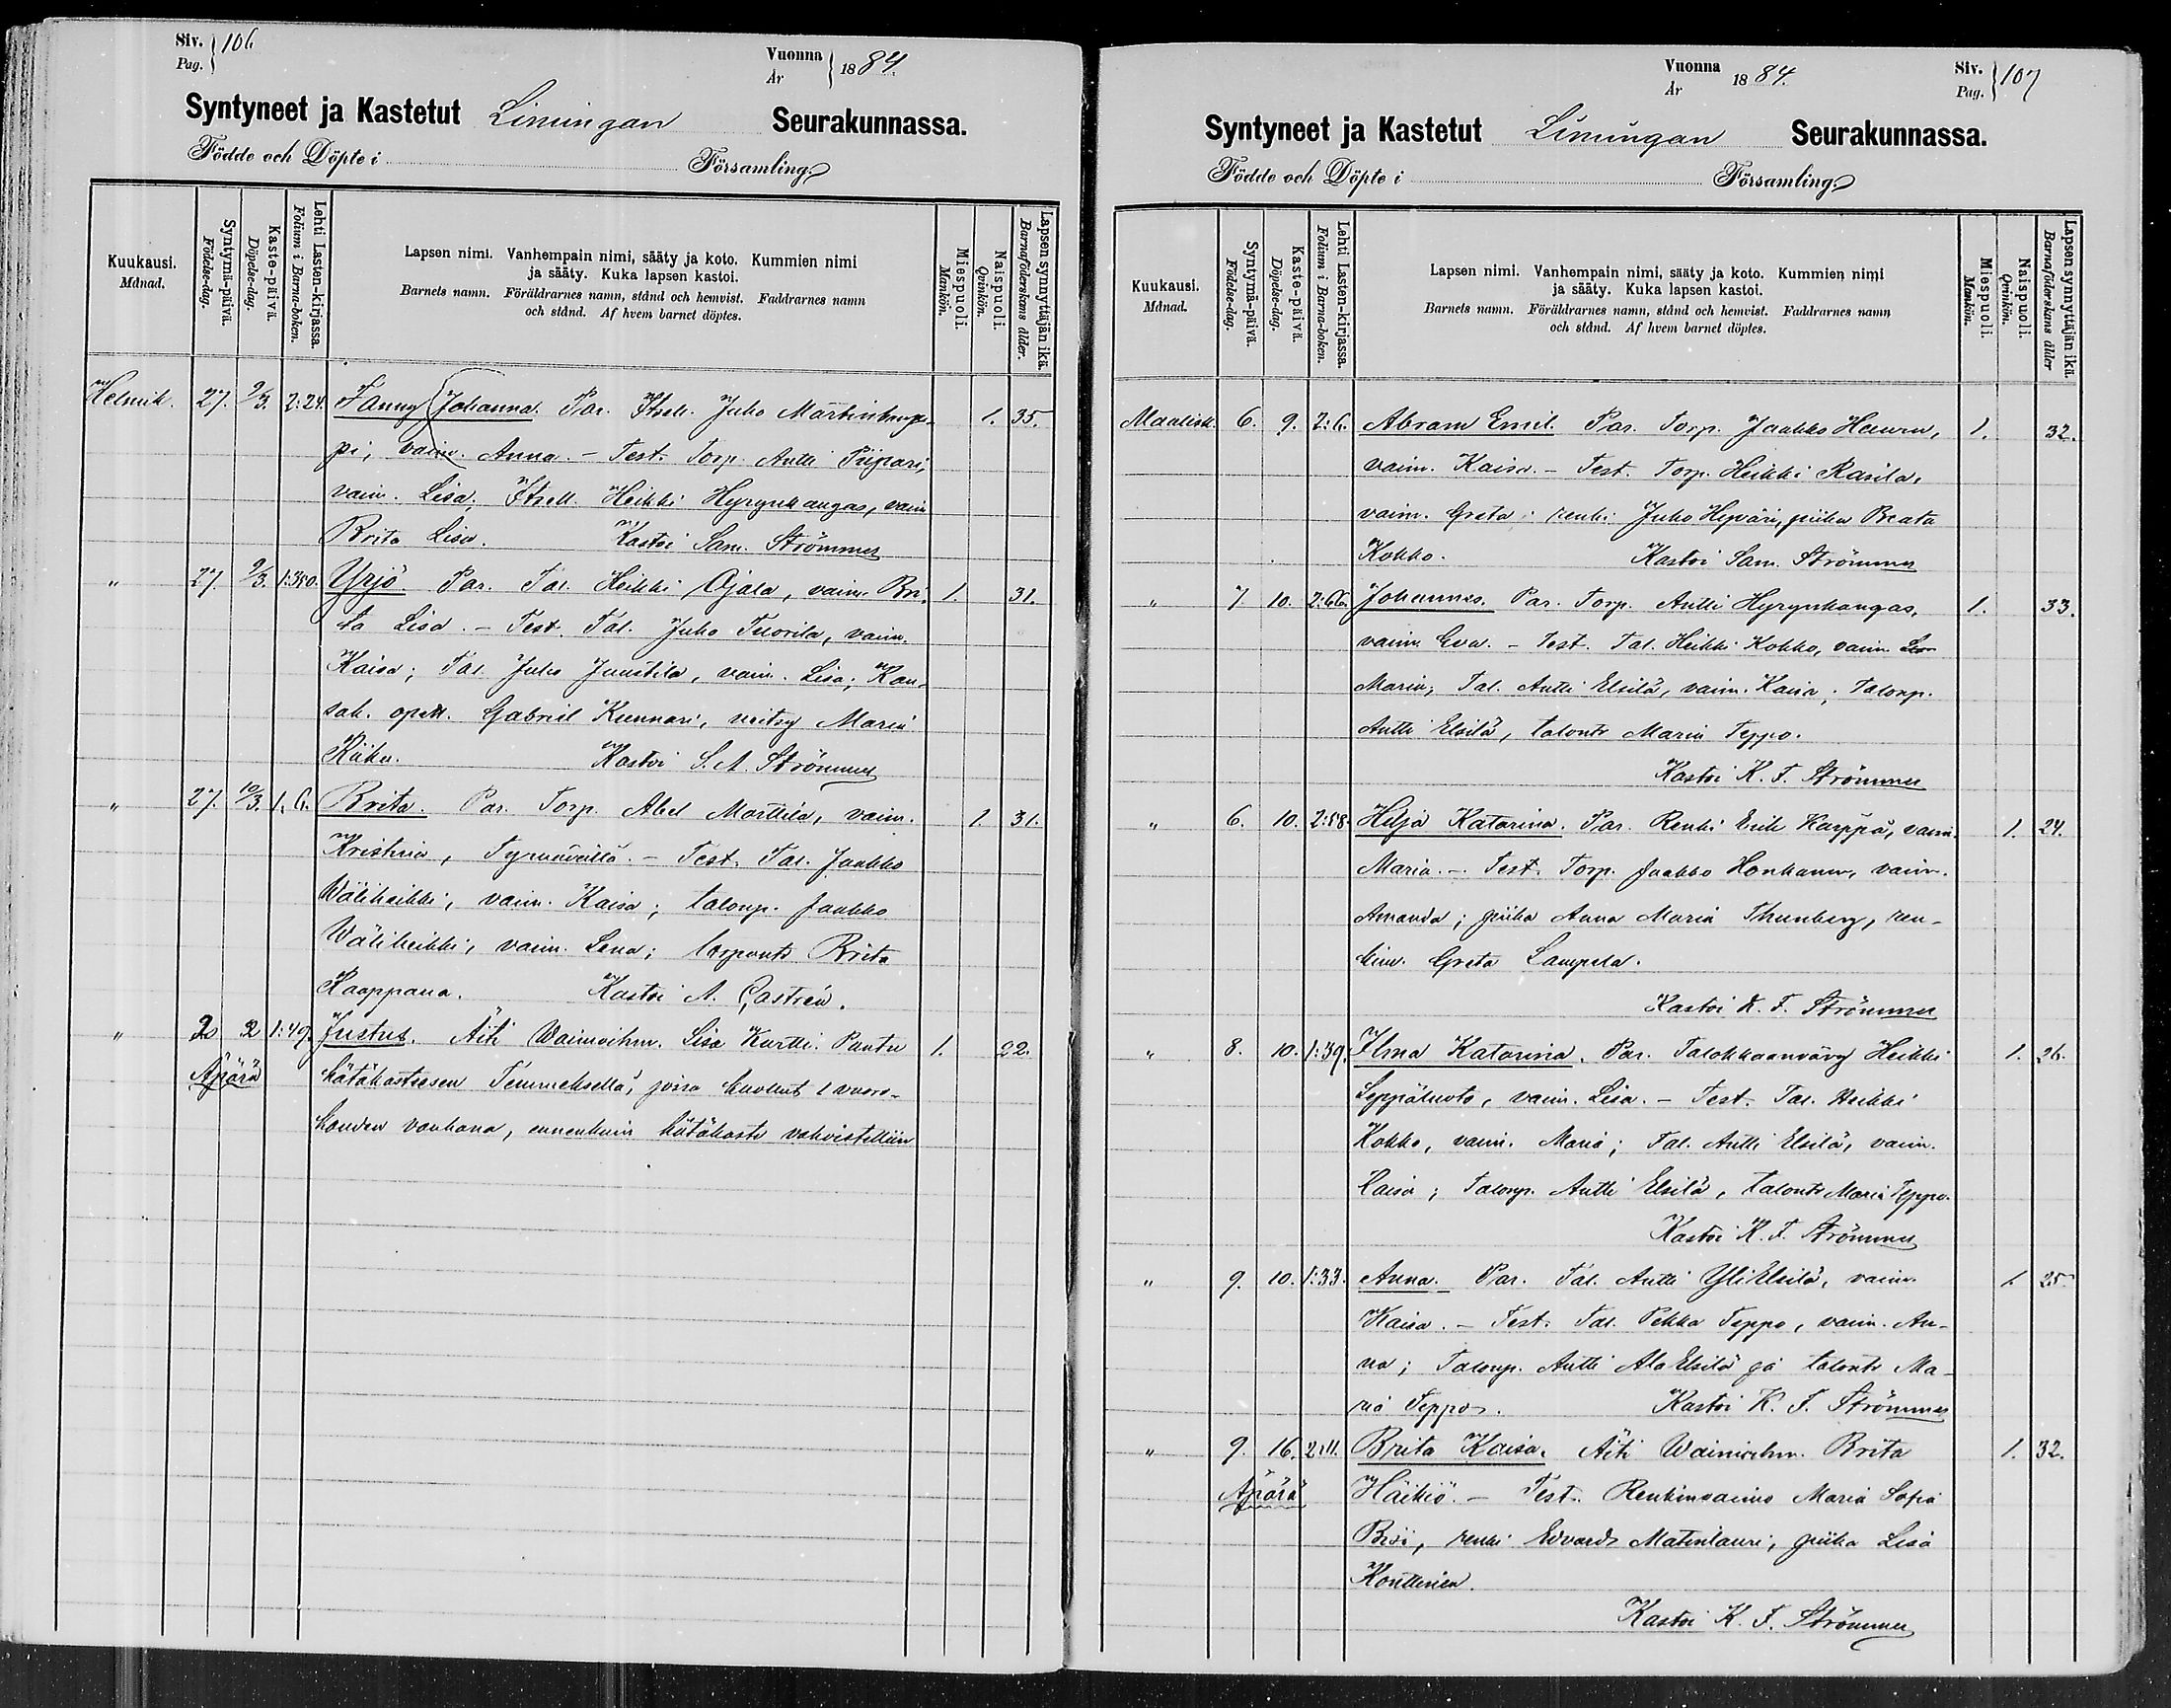 Siv. Pag. 106
Vuonna År 1884.
Syntyneet ja Kastetut Limingan Seurakunnassa.
Födde och Döpte i Församling
Kuukausi. Månad.
Syntymä-päivä. Födelse-dag.
Kaste-päivä. Döpelse-dag.
Lehti Lasten-kirjassa. Folium i Barna-boken.
Lapsen nimi. Vanhempain nimi, sääty ja koto. Kummien nimi
ja sääty. Kuka lapsen kastoi.
Barnets namn. Föräldrarnes namn, stånd och hemvist. Faddrarnes namn
och stånd. Af hvem barnet döptes.
Miespuoli. Mankön.
Naispuoli. Qvinkön.
Lapsen synnyttäjän ikä. Barnaföderskans ålder.
Helmik. 27. 9/3. 2:24. Fanny Johanna. Par. Itsell. Juho Martinkaup- 1. 35.
pi, vaim. Anna. – Test. Torp. Antti Piipari,
vaim. Lisa; Itsell. Heikki Hyrynkangas, vaim
Brita Lisa. Kastoi Sam. Strömmer
" 27. 9/3. 1:380. Yrjö. Par. Tal. Heikki Ojala, vaim. Bri- 1. 31.
ta Lisa. – Test. Tal. Juho Tuorila, vaim.
Kaisa; Tal. Juho Juustila, vaim. Lisa; Kan-
sak. opett. Gabriel Kunnari, neitsy Maria
Kastoi S. A. Strömmer
" 27. 10/3. 1. 6. Brita. Par. Torp. Abel Marttila, vaim. 1. 31.
Kristina, Tyrnävällä. – Test. Tal. Jaakko
Wäliheikki, vaim. Kaisa; talonp. Jaakko
Wäliheikki, vaim. Lena; torpantr Brita
Haappana. Kastoi A. Castrén.
" 20 22 1:49. Justus. Äiti Waimoihm. Lisa Kurtti. Pantu 1. 22.
Äpärä hätäkasteesen Temmeksellä, joisa kuollut 1 vuoro-
kauden vanhana, ennenkuin hätäkaste vahvistettiin
Vuonna År 1884.
Siv. Pag. 107
Syntyneet ja Kastetut Limingan Seurakunnassa.
Födde och Döpte i Församling
Kuukausi. Månad.
Syntymä-päivä. Födelse-dag.
Kaste-päivä. Döpelse-dag.
Lehti Lasten-kirjassa. Folium i Barna-boken.
Lapsen nimi. Vanhempain nimi, sääty ja koto. Kummien nimi
ja sääty. Kuka lapsen kastoi.
Barnets namn. Föräldrarnes namn, stånd och hemvist. Faddrarnes namn
och stånd. Af hvem barnet döptes.
Miespuoli. Mankön.
Naispuoli. Qvinkön.
Lapsen synnyttäjän ikä. Barnaföderskans ålder
Maalisk. 6. 9. 2:6. Abram Emil. Par. Torp. Jaakko 1. 32.
vaim. Kaisa. – Test. Torp. Heikki Rasila,
vaim. Greta; renki Juho Hyväri, piika Beata
Kokko. Kastoi Sam. Strömmer
" 7 10. 2:66. Johannes. Par. Torp. Antti Hyrynkangas, 1. 33.
vaim. Eva. – Test. Tal. Heikki Kokko, vaim.
Maria; Tal. Antti Elsilä, vaim. Kaisa; Talonp.
Antti Elsilä, talontr Maria Teppo.
Kastoi K. F. Strömmer
" 6. 10. 2:58. Hilja Katarina. Par. Renki Erik Karppa, vaim. 1. 24.
Maria. – Test. Torp. Jaakko Honkanen, vaim.
Amanda; piika Anna Maria Thunberg, ren-
kinv. Greta Lampela.
Kastoi K. F. Strömmer
" 8. 10. 1:39. Ilma Katarina. Par. Talokkaanvävy Heikki 1. 26.
Leppäluoto, vaim. Lisa. – Test. Tal. Heikki
Kokko, vaim. Maria; Tal. Antti Elsilä, vaim.
Kaisa; Talonp. Antti Elsilä, talontr Maria Teppo.
Kastoi K. F. Strömmer
" 9. 10. 1:33. Anna. Par. Tal. Antti YliElsilä, vaim. 1. 25.
Kaisa. – Test. Tal. Pekka Teppo, vaim. An-
na; Talonp. Antti AlaElsilä ja talontr Ma-
ria Teppo. Kastoi K. F. Strömmer
" 9. 16. 2:11. Brita Kaisa. Äiti Waimoihm. Brita 1. 32.
Äpärä Häikiö. – Test. Renkinvaimo Maria Sofia
renki Edvard Matinlauri, piika Lisa
Konttinen.
Kastoi K. F. Strömmer